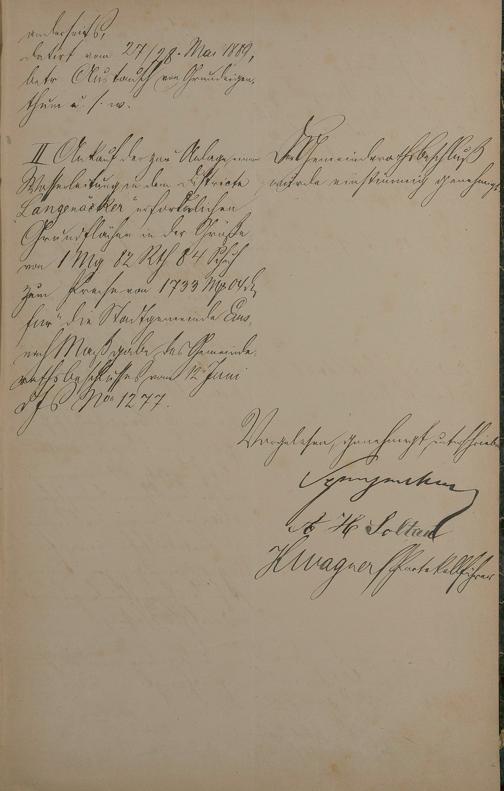 anderseits,
datirt vom 27/28. Mai 1889,
betr. Austausch von Grundeigen-
thum u. s. w.
II Ankauf der zur Anlage einer
Wasserleitung in dem Distrikte
"Langenäcker" erforderlichen
Grundflächen in der Größe
von 1 Mg 02 Rth 84 Schuh
zum Preise von 1733 M 04 d
für die Stadtgemeinde Ems,
nach Maßgabe des Gemeinde-
rathsbeschlusses vom 12 Juni
d Js No 1277.
Der Gemeinderathsbeschluß
wurde einstimmig genehmigt
Vorgelesen, genehmigt, unterschrieben
A H Soltau
H Wagner Protokollführer